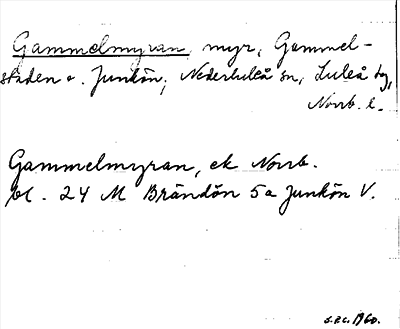 Gammelmyran, myr, Gammel-
staden o. Junkön; Nederluleå sn, Luleå tg,
Norrb. l.
Gammelmyran, ek Norrb.
bl. 24 M Brändön 5a Junkön V.
1960.